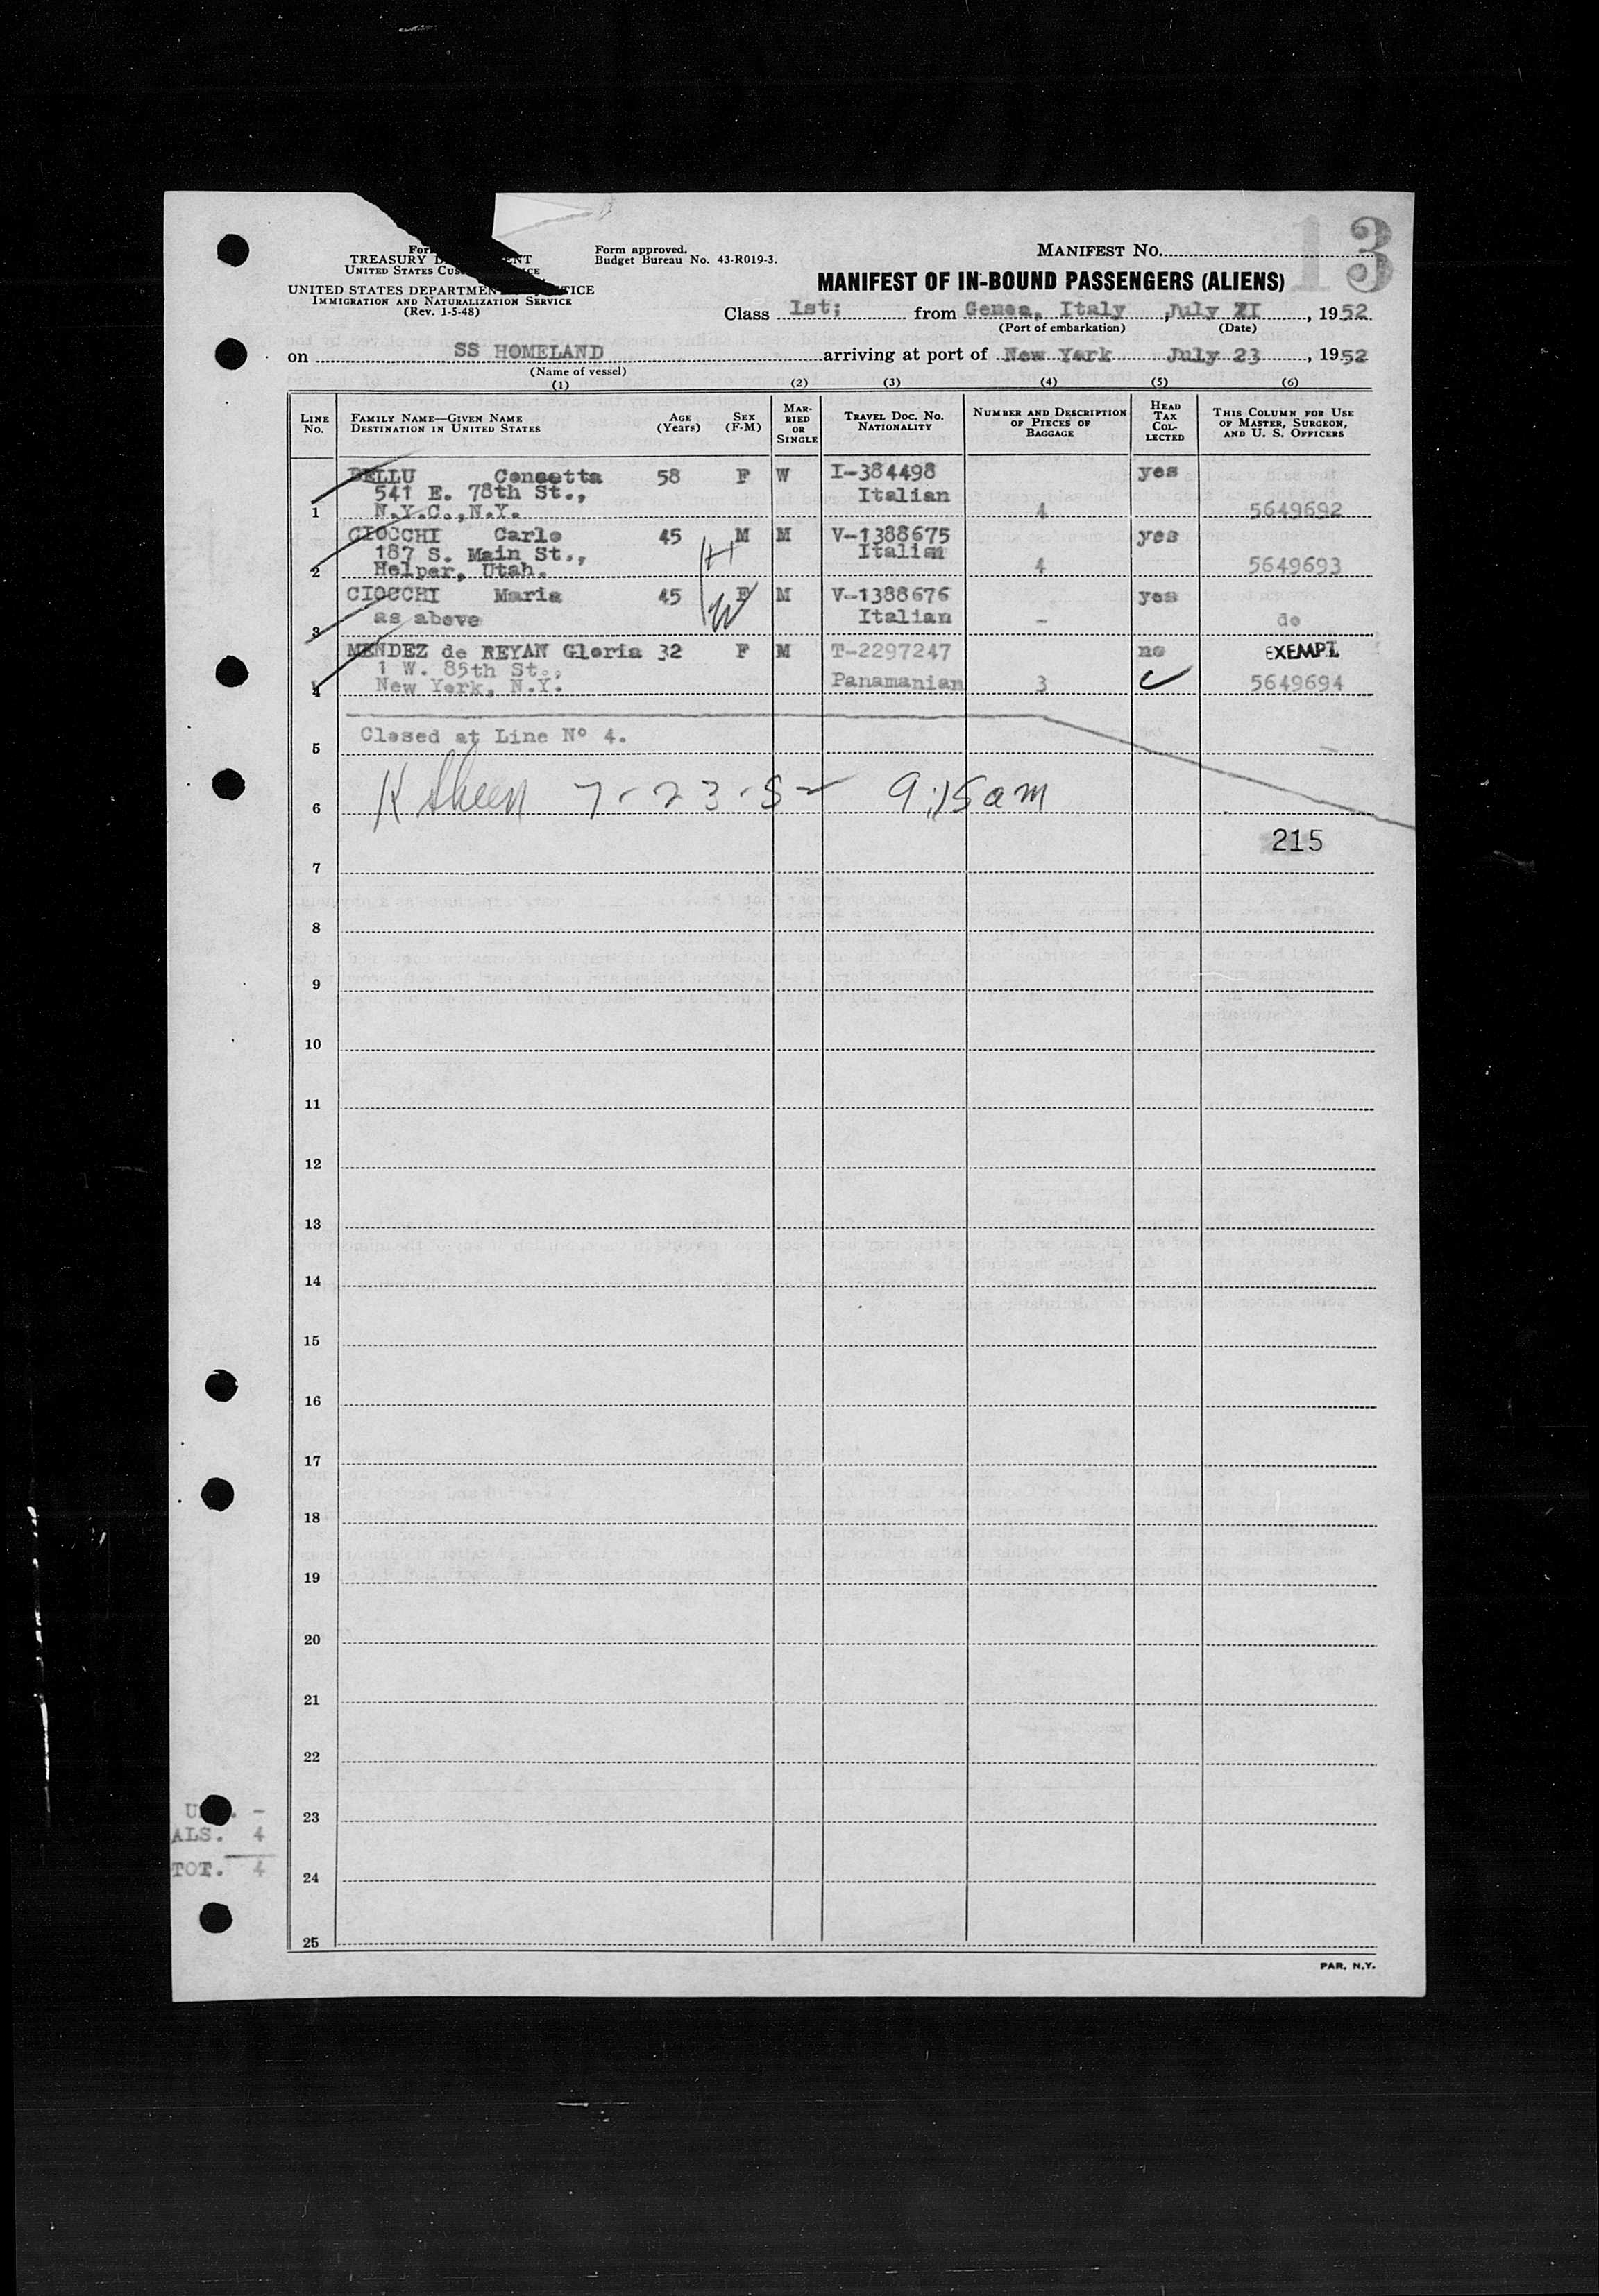 13
TREASURY
UNITED STATES
UNITED STATES DEPARTMENT
IMMIGRATION AND NATURALIZATION SERVICE
(Rev. 1-5-48)
Form approved.
Budget Bureau No. 43-R019-3.
MANIFEST NO.
MANIFEST OF IN-BOUND PASSENGERS (ALIENS)
Class 1st; from Genoa, Italy, July 1952
(Port of embarkation) (Date)
on SS HOMELAND arriving at port of New York July 23, 1952
(Name of vessel)
(1) (2) (3) (4) (5) (6)
LINE No. FAMILY NAME—GIVEN NAME DESTINATION IN UNITED STATES AGE (Years) SEX (F-M) MARRIED OR SINGLE TRAVEL DOC. NO. NATIONALITY NUMBER AND DESCRIPTION OF PIECES OF BAGGAGE HEAD TAX COLLECTED THIS COLUMN FOR USE OF MASTER, SURGEON, AND U. S. OFFICERS
BELLU Concetta 58 F W I-384498 yes
541 E. 78th St., Italian
1 N.Y.C., N.Y. 4 5649692
CIOCCHI Carlo 45 M M V-1388675 yes
187 S. Main St., Italian
2 Helper, Utah. 4 5649693
CIOCCHI Maria 45 F M V-1388676 yes
3 as above Italian - do
MENDEZ de REYAN Gloria 32 F M T-2297247 no EXEMPT
1 W. 85th St.,
4 New York, N.Y. Panamanian 3 5649694
H
W
5 Closed at Line Nº 4.
6 7-23-52 9:15am
215
7
8
9
10
11
12
13
14
15
16
17
18
19
20
21
22
23
24
25
ALS. 4
TOT. 4
PAR. N.Y.